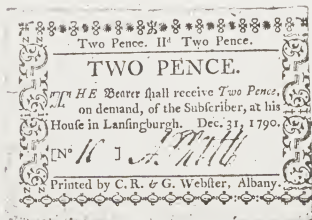 Two Pence. IId Two Pence.
TWO PENCE.
THE Bearer ſhall receive Two Pence,
on demand, of the Subſcriber, at his
Houſe in Lanſingburgh. Dec. 31, 1790.
[No ]
Printed by C. R. & G. Webſter, Albany.